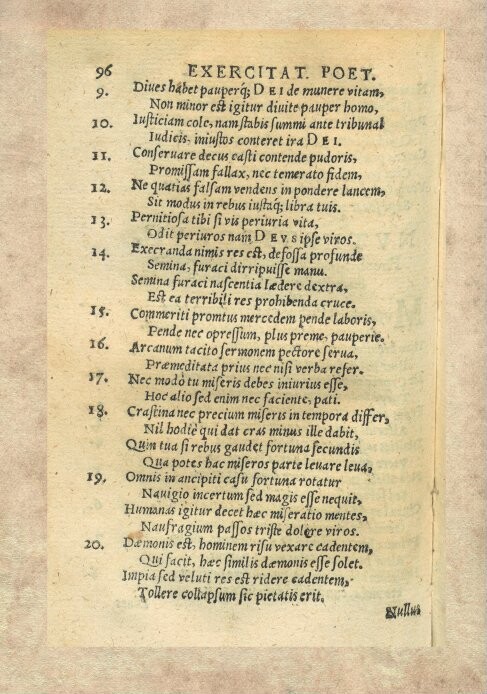 96 EXERCITAT. POET.
9. Diues habet pauperq; DEI de munere vitam,
Non minor est igitur diuite pauper homo,
10. Iusticiam cole, nam stabis summi ante tribunal
Iudicis, iniustos conteret ira DEI.
11. Conseruare decus casti contende pudoris,
Promissam fallax, nec temerato fidem,
12. Ne quatias falsam vendens in pondere lancem,
Sit modus in rebus iustaq; libra tuis.
13. Pernitiosa tibi si vis periuria vita,
Odit periuros nam DEVS ipse viros.
14. Execranda nimis res est, defossa profunde
Semina, furaci dirripuisse manu.
Semina furaci nascentia lædere dextra,
Est ea terribili res prohibenda cruce.
15. Commeriti promtus mercedem pende laboris,
Pende nec opressum, plus preme, pauperie.
16. Arcanum tacito sermonem pectore serua,
Præmeditata prius nec nisi verba refer.
17. Nec modò tu miseris debes iniurius esse,
Hoc alio sed enim nec faciente, pati.
18. Crastina nec precium miseris in tempora differ,
Nil hodiè qui dat cras minus ille dabit,
Quin tua si rebus gaudet fortuna secundis
Qua potes hac miseros parte leuare leua,
19. Omnis in ancipiti casu fortuna rotatur
Nauigio incertum sed magis esse nequit,
Humanas igitur decet hæc miseratio mentes,
Naufragium passos triste dolere viros.
20. Dæmonis est, hominem risu vexare cadentem,
Qui facit, hæc similis dæmonis esse solet.
Impia sed veluti res est ridere cadentem,
Tollere collapsum sic pietatis erit.
Nullus